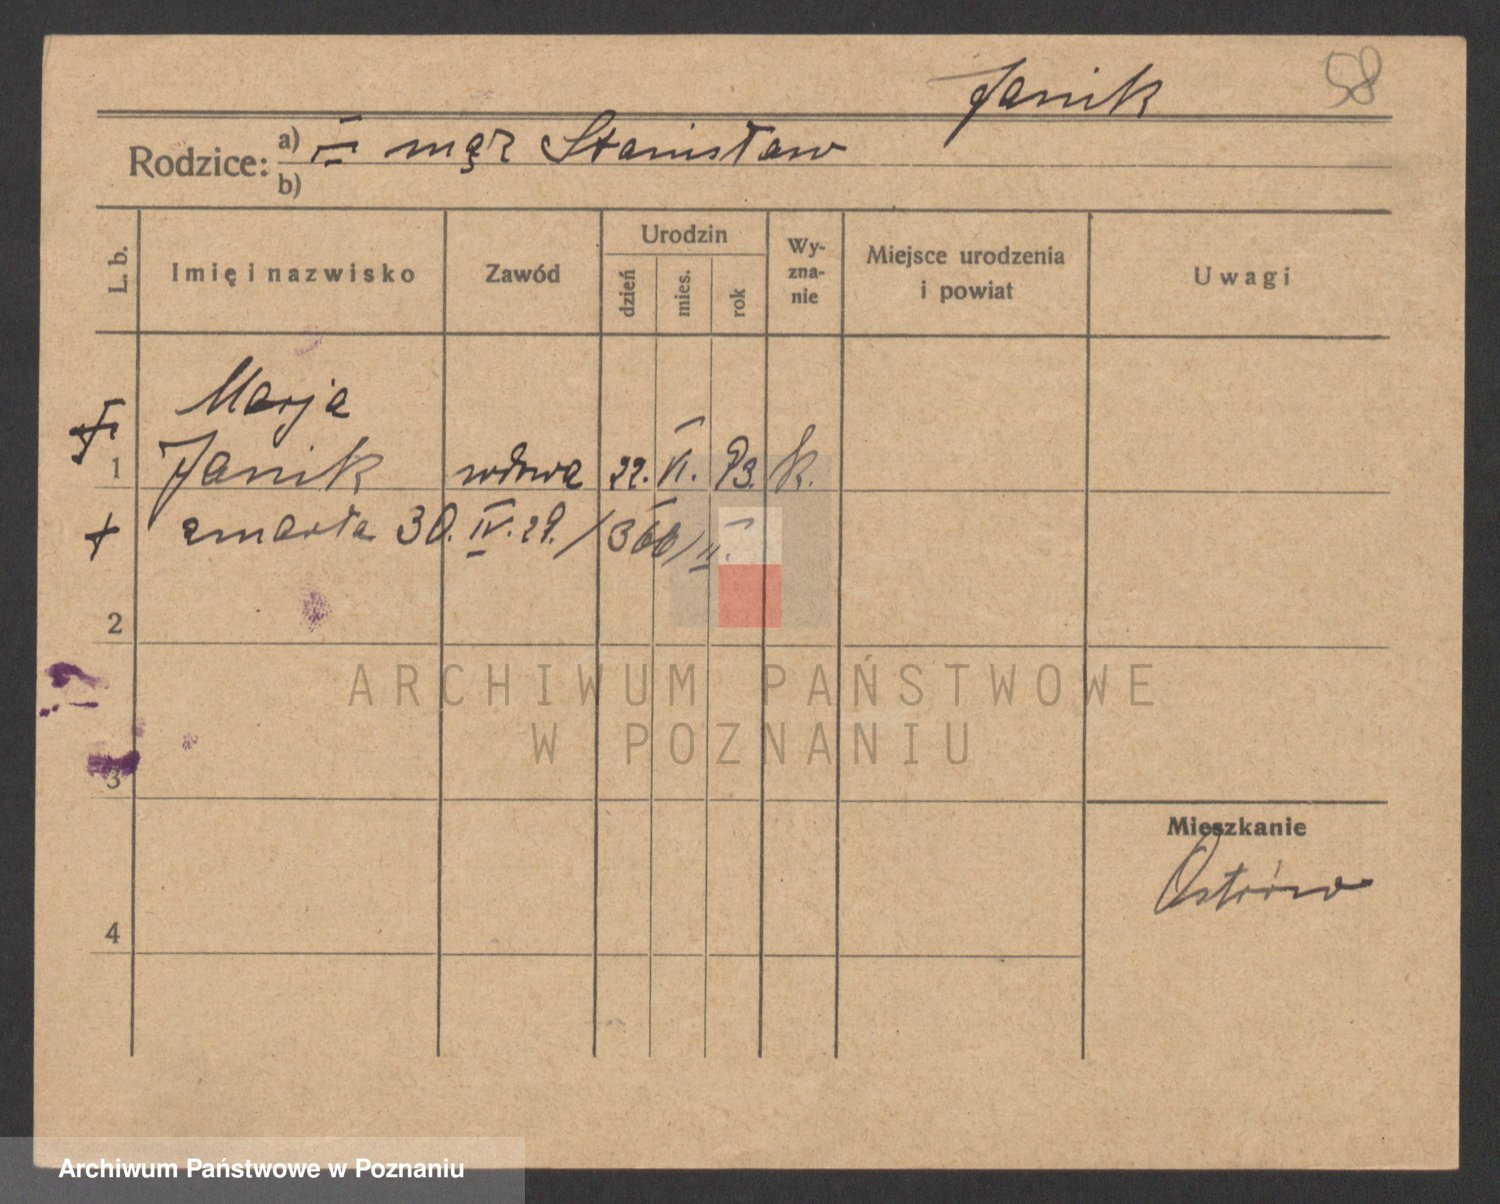 Janik 58
Rodzice: a) I mąż Stanisław
b)
L. b. Imię i nazwisko Zawód Urodzin dzień mies. rok Wyznanie Miejsce urodzenia i powiat Uwagi
Marja
1 Janik wdowa 22. VI. 93. k.
+ zmarła 30. IV. 29. / 366/II.
2
3
4
Mieszkanie
Ostrów
ARCHIWUM PAŃSTWOWE
W POZNANIU
Archiwum Państwowe w Poznaniu